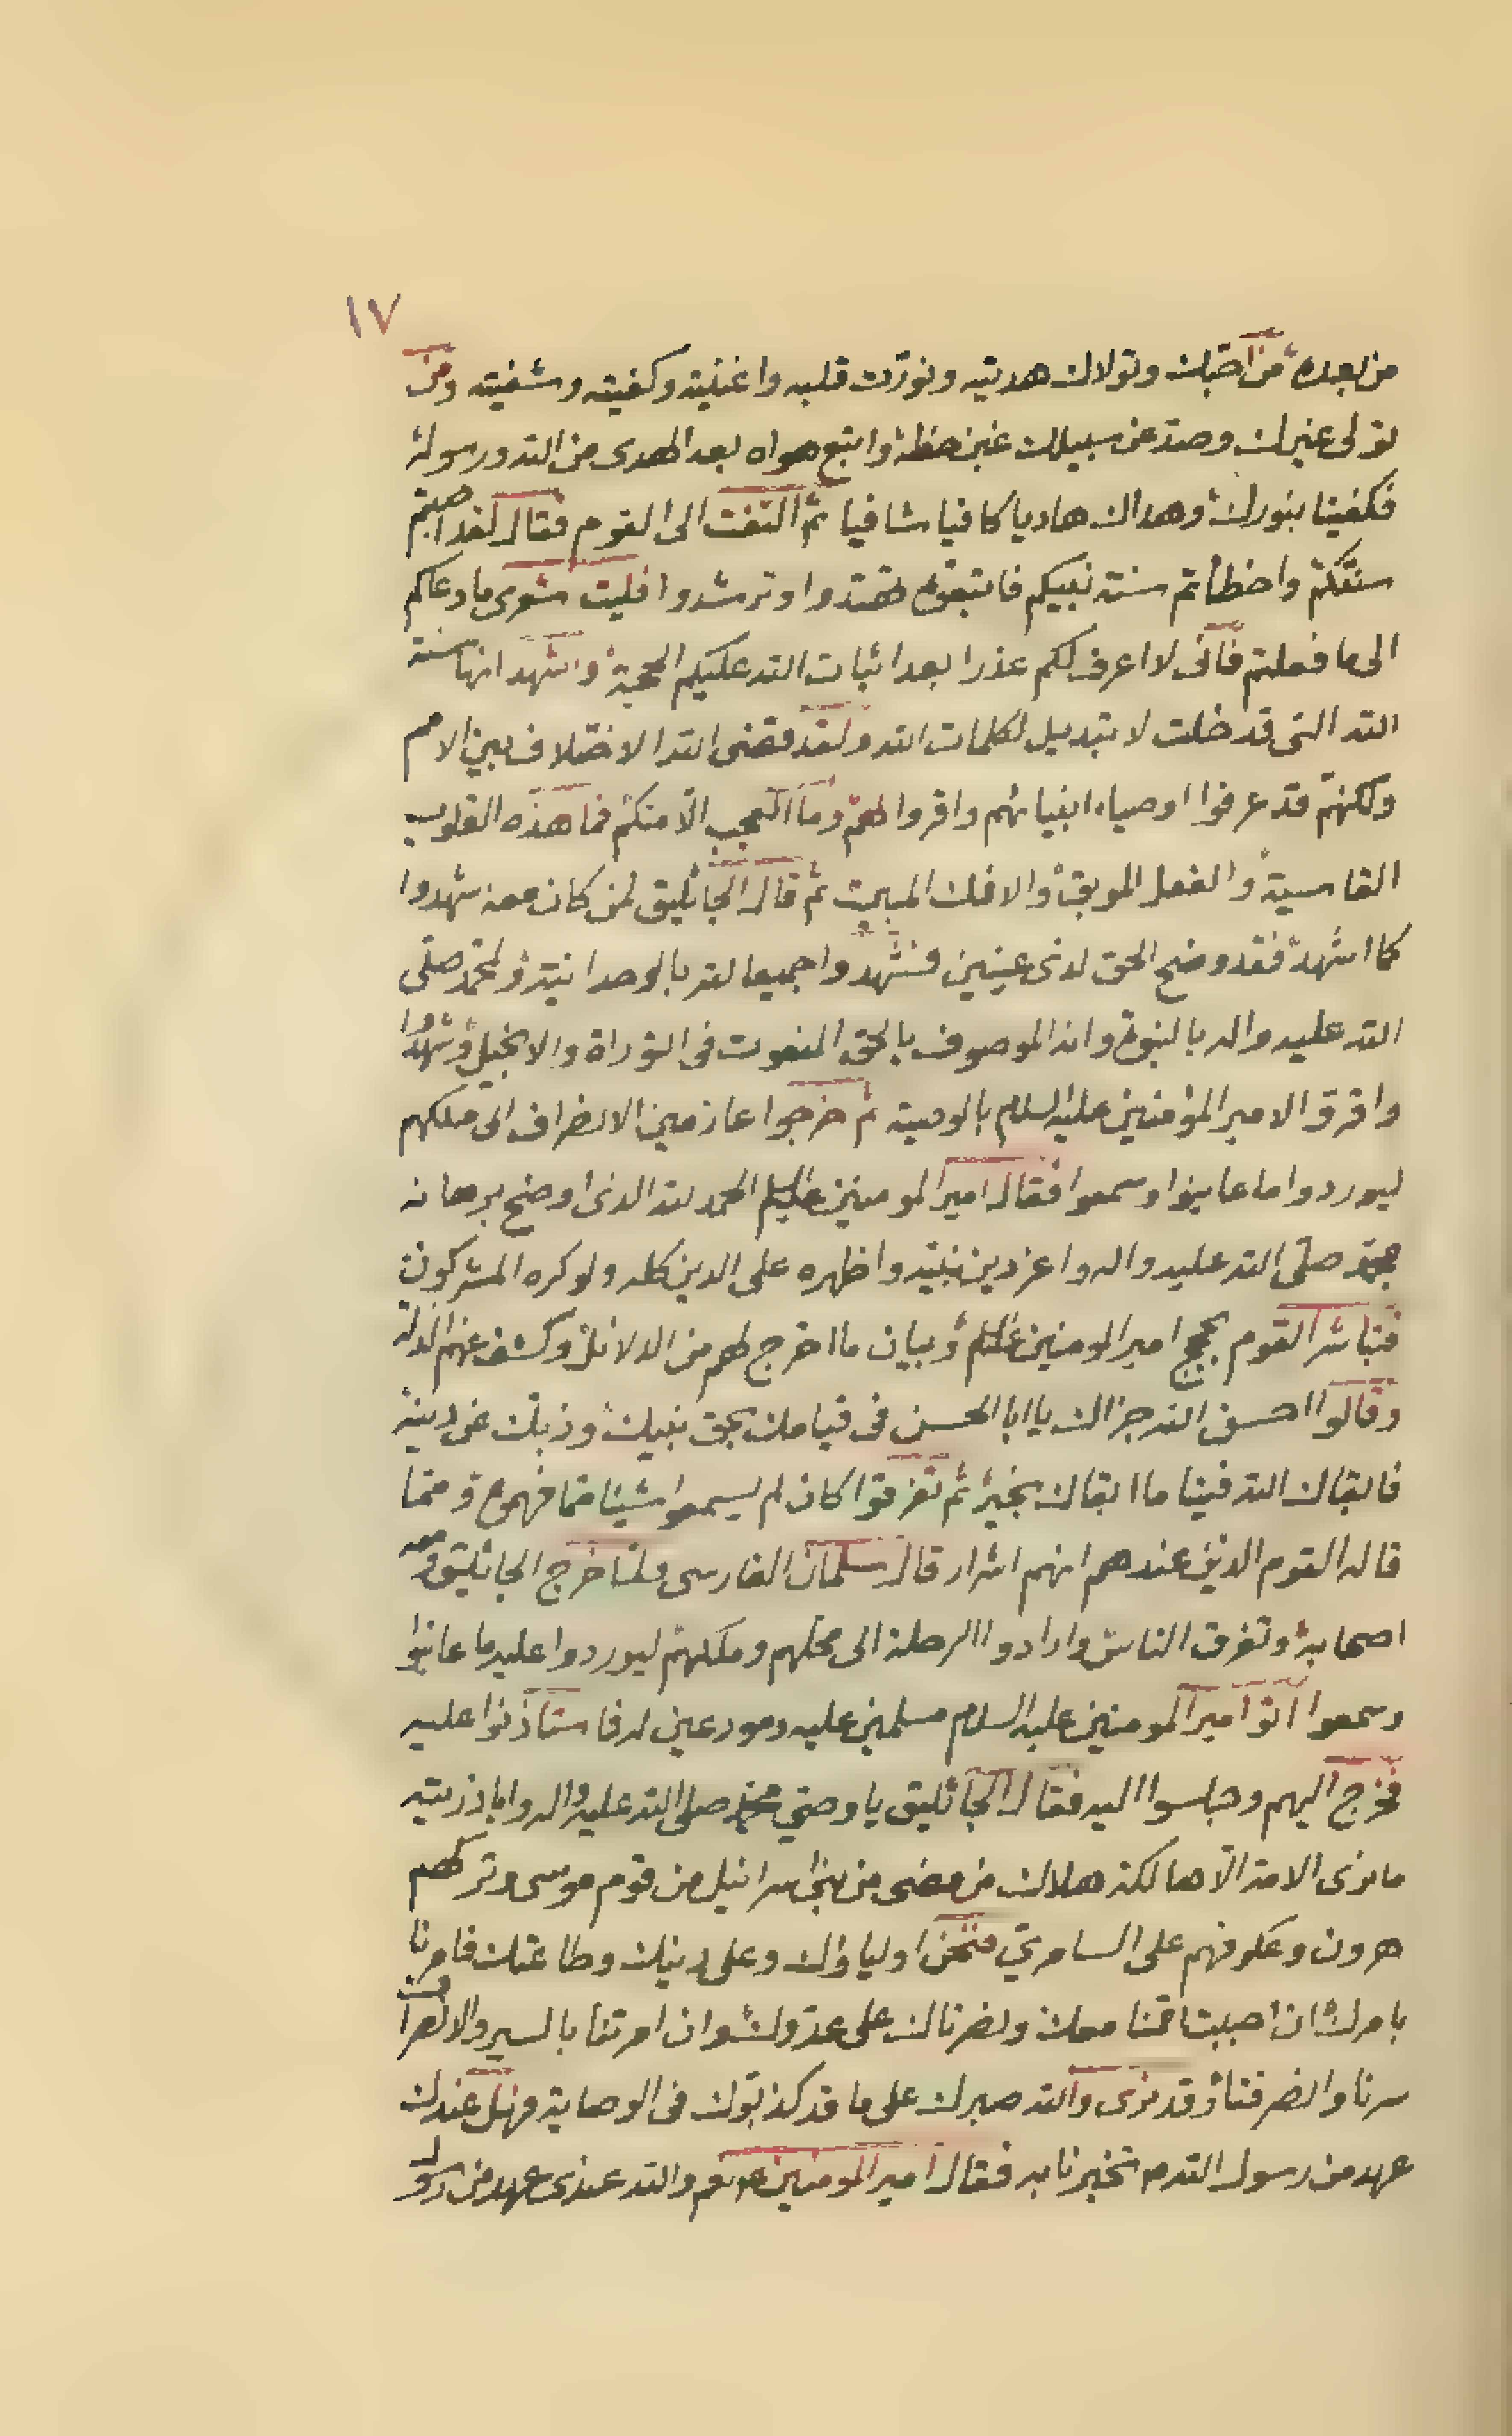 ١٧
من بعده من احبك وتولاك هديته ونورت قلبه واغنيته وكفيته وشفيته ومن
تولى غيرك وصد عن سبيلك غبن حظه واتبع هواه بعد الهدى من الله ورسوله
فكفينا بنورك وهداك هاديا كافيا شافيا ثم التفت الى القوم فقال لقد اصبتم
سنتكم واخطأتم سنة نبيكم فاتبعوه تهتدوا وترشدوا فليت شعرى ما دعاكم
الى ما فعلتم فانى لا اعرف لكم عذرا بعد اثبات الله عليكم الحجة واشهد انها سنة
الله التى قد خلت لا تبديل لكلمات الله ولقد قضى الله الاختلاف بين الامم
ولكنهم قد عرفوا اوصياء انبيائهم واقروا لهم وما العجب الا منكم فما هذه القلوب
القاسية والفعل الموبق والافك المبهت ثم قال الجاثليق لمن كان معه شهدوا
كما اشهد فقد وضح الحق لذى عينين فشهدوا جميعا لله بالوحدانية ولمحمد صلى
الله عليه واله بالنبوة وانه الموصوف بالحق المنعوت فى التوراة والانجيل وشهدوا
واقروا لامير المؤمنين عليه السلام بالوصية ثم خرجوا عازمين الانصراف الى ملكهم
ليوردوا ما عاينوا وسمعوا فقال امير المومنين عليه السلم الحمد لله الذى اوضح برهانه
محمد صلى الله عليه واله واعز دين نبيه واظهره على الدين كله ولو كره المشركون
فتباشر القوم بحجج امير المومنين عليه السلم وبيان ما اخرج لهم من الدلائل وكشف عنهم الذلة
وقالوا احسن الله جزاك يا ابا الحسن فى قيامك بحق نبيك وذبك عن دينه
فابقاك الله فينا ما ابقاك بخير ثم تفرقوا كان لم يسمعوا شيئا مما فهموه ومما
قاله القوم الذين عندهم انهم اشرار قال سلمان الفارسى ولما خرج الجاثليق ومعه
اصحابه وتفرق الناس وارادوا الرحلة الى محلهم وملكهم ليوردوا عليه ما عاينوا
وسمعوا اتوا امير المومنين عليه السلام مسلمين عليه ومودعين له فاستاذنوا عليه
فخرج اليهم وجلسوا اليه فقال الجاثليق يا وصى محمد صلى الله عليه واله وابا ذريته
ما نرى الامة الا هالكة هلاك من مضى من بنى اسرائيل من قوم موسى وتركهم
هرون وعكوفهم على السامرى فنحن اولياؤك وعلى دينك وطاعتك فامرنا
بامرك ان احببت اقمنا معك ونصرناك على عدوك وان امرتنا بالسير والانصراف
سرنا وانصرفنا وقد نرى والله صبرك على ما قد كذبوك فى الوصاية فهل عندك
عهد من رسول الله م تخبرنا به فقال امير المومنين ع نعم والله عندى عهد من رسول